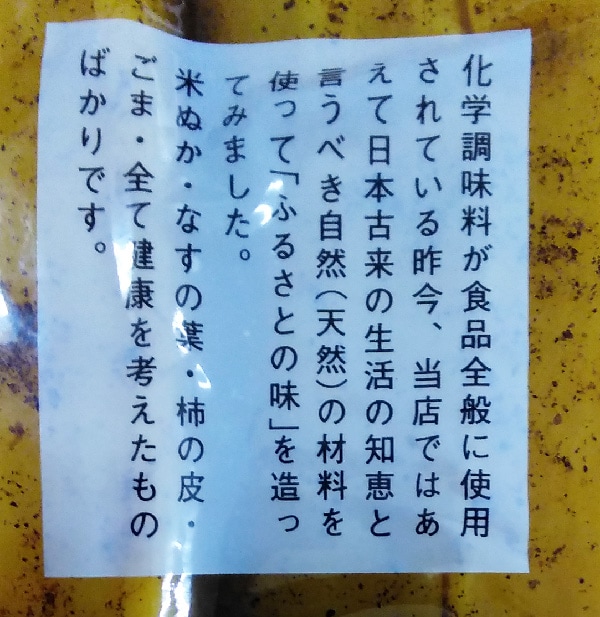 化学調味料が食品全般に使用
されている昨今、当店ではあ
えて日本古来の生活の知恵と
言うべき自然(天然)の材料を
使って「ふるさとの味」を造っ
てみました。
米ぬか・なすの葉・柿の皮・
ごま・全て健康を考えたもの
ばかりです。